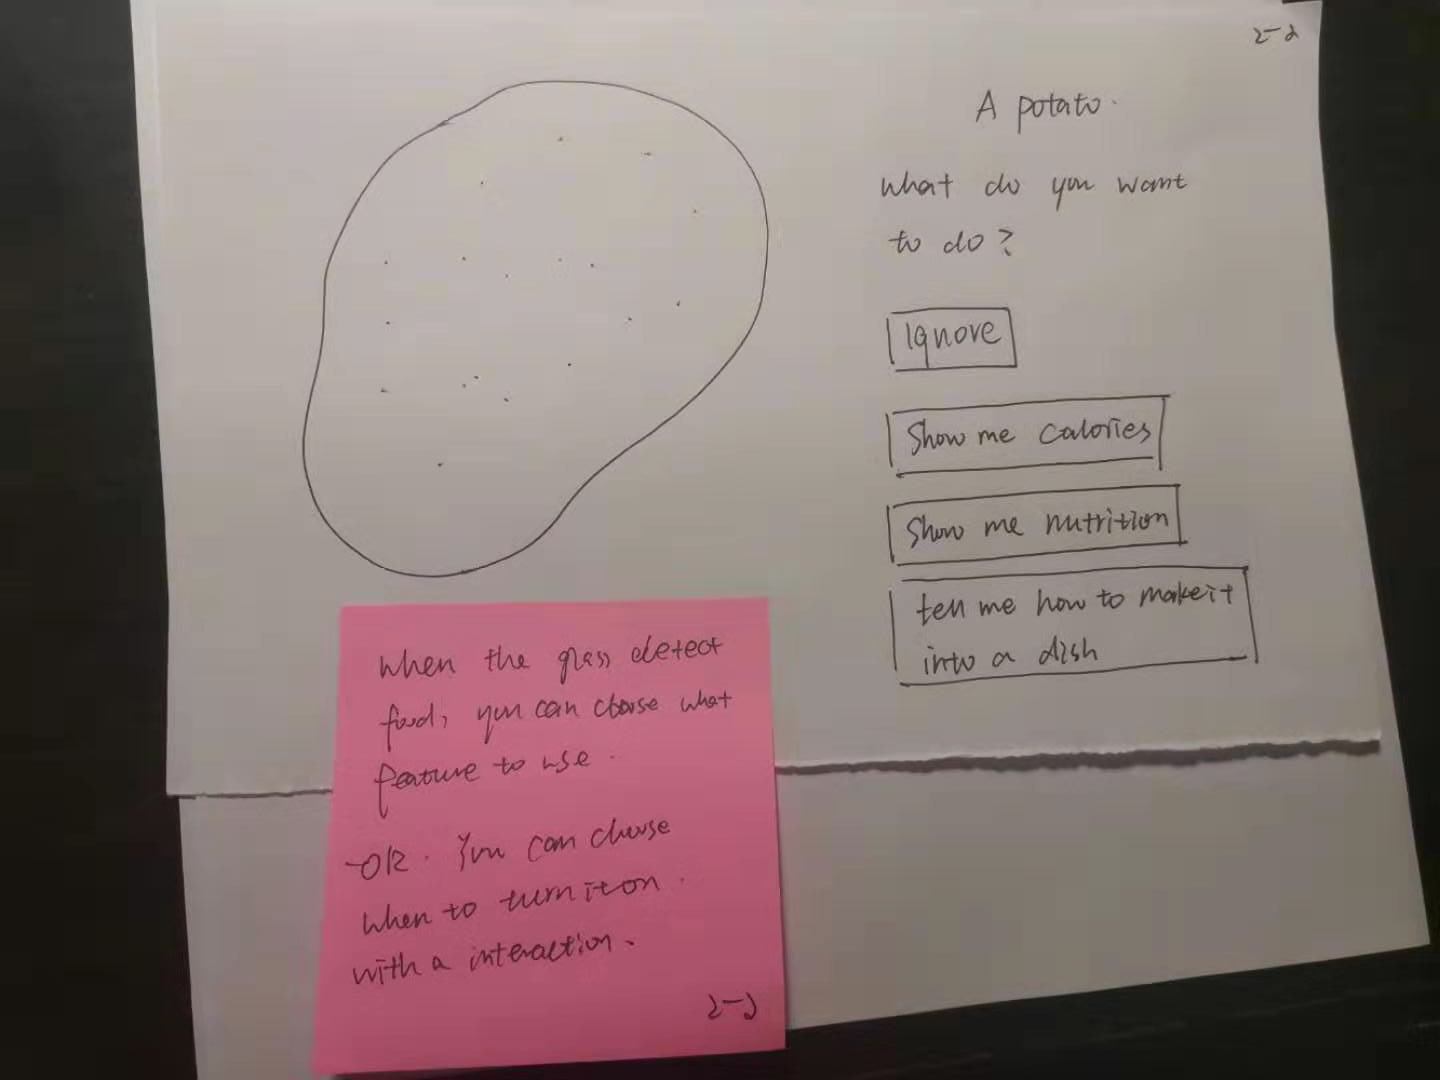 2-2
A potato.
What do you want
to do?
Ignore
Show me calories
Show me nutrition
tell me how to make it
into a dish
When the glass detect
food, you can choose what
feature to use.
-OR. You can choose
when to turn it on.
with a interaction.
2-2